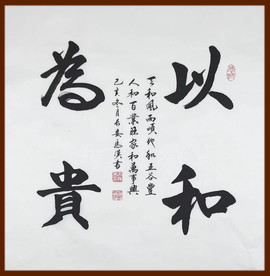 以和
為貴
天和風雨順地和五谷豐
人和百業旺家和萬事興
己亥冬月長安